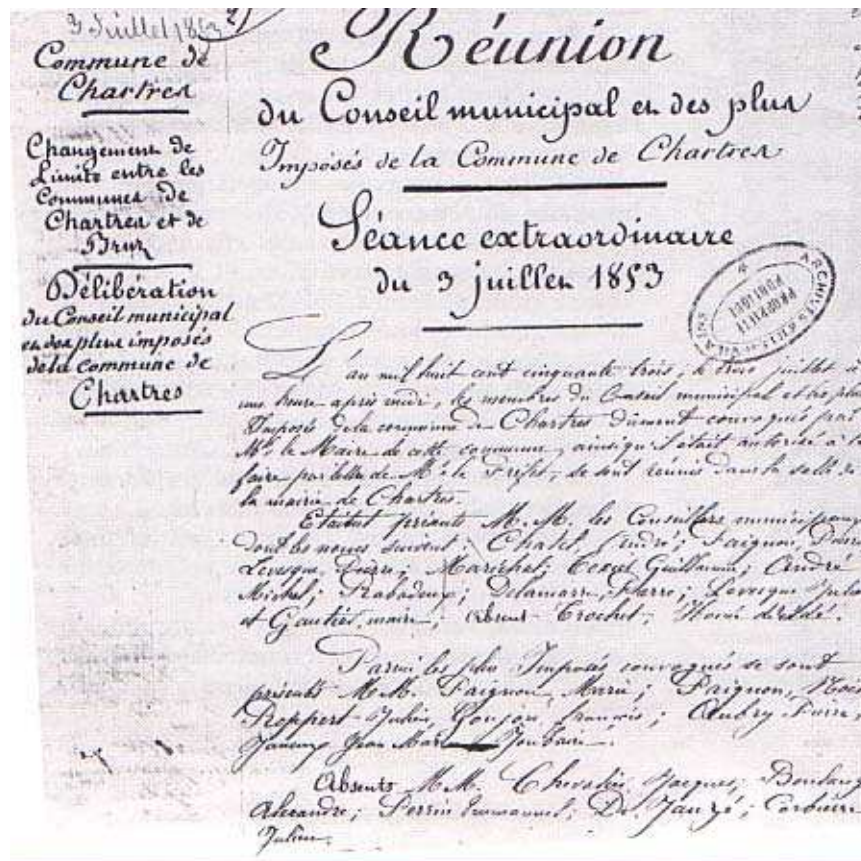 3 Juillet 1853
Commune de
Chartres
Changement de
Limite entre les
Communes de
Chartres et de
Bruz
Délibération
du Conseil municipal
et des plus imposés
de la commune de
Chartres
Réunion
du Conseil municipal et des plus
Imposés de la Commune de Chartres
Séance extraordinaire
du 3 juillet 1853
ARCHIVES
L'an mil huit cent cinquante trois, le trois juillet à
une heure après midi, les membres du Conseil municipal et les plus
Imposés de la commune de Chartres dûment convoqués par
Mr. le Maire de cette commune, ainsi qu'il était autorisé à le
faire par lettre de Mr. le Préfet, se sont réunis dans la salle de
la mairie de Chartres.
Etaient présents M.M. les Conseillers municipaux
dont les noms suivent: Chatel André; Faignon Pierre
Levesque Pierre; Marichal; Guillaume; André
Michel; Rabadeux; Delamarre Pierre; Levesque
et Gautier, maire; absent Crochet,
Parmi les plus Imposés convoqués se sont
présentés M.M. Paignon Marie; Paignon,
Roppert Julien, Goujon françois; Aubry Pierre,
Jean Marie
Absents M.M. Chevalier Jacques; Boulang
Alexandre; Perrin Emmanuel; De Janzé; Corbière
Julien.